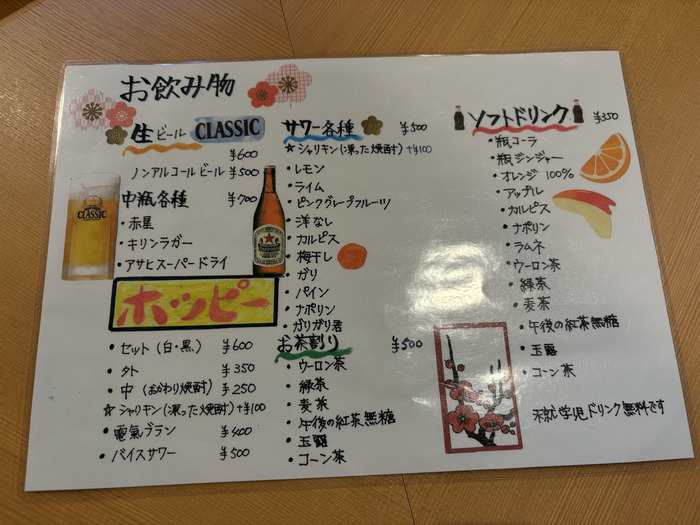 お飲み物
生ビール CLASSIC
¥600
ノンアルコールビール ¥500
中瓶各種 ¥700
・赤星
・キリンラガー
・アサヒスーパードライ
CLASSIC
ホッピー
・セット（白・黒） ¥600
・外 ¥350
・中（おかわり焼酎） ¥250
☆シャリキン（凍った焼酎）+¥100
・電氣ブラン ¥400
・バイスサワー ¥500
サワー各種 ¥500
☆シャリキン（凍った焼酎）+¥100
・レモン
・ライム
・ピンクグレープフルーツ
・洋なし
・カルピス
・梅干し
・ガリ
・パイン
・ナポリン
・ガリガリ君
お茶割り ¥500
・ウーロン茶
・緑茶
・麦茶
・午後の紅茶無糖
・玉露
・コーン茶
ソフトドリンク ¥350
・瓶コーラ
・瓶ジンジャー
・オレンジ 100%
・アップル
・カルピス
・ナポリン
・ラムネ
・ウーロン茶
・緑茶
・麦茶
・午後の紅茶無糖
・玉露
・コーン茶
未就学児ドリンク無料です